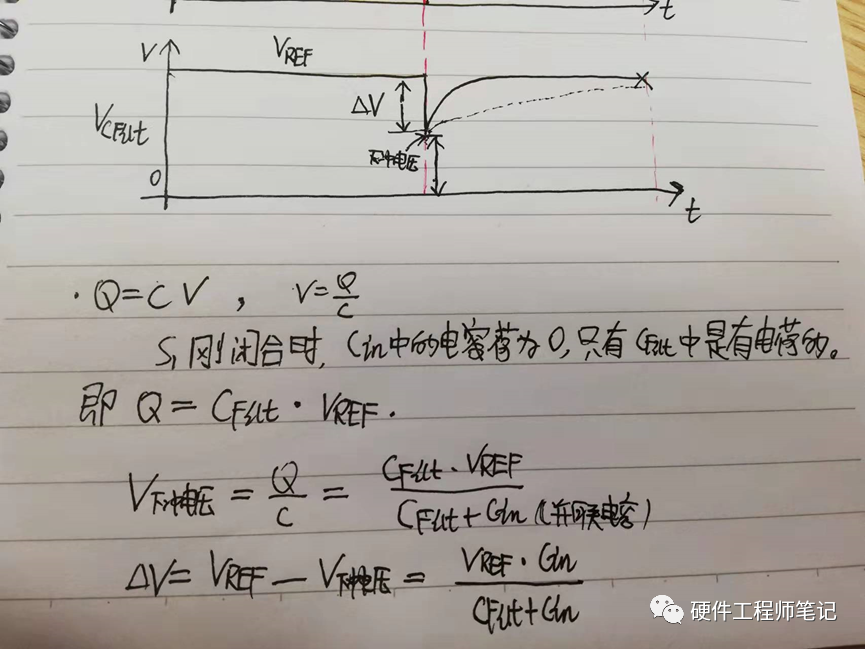 t
V
VREF
ΔV
VCFilt
下冲电压
0
t
· Q=CV , V=Q/C
S₁刚闭合时, Cin中的电荷为0,只有CFilt中是有电荷的。
即 Q = CFilt · VREF.
V下冲电压 = Q/C = CFilt · VREF / CFilt + Cin (并联电容)
ΔV = VREF — V下冲电压 = VREF · Cin / CFilt + Cin
硬件工程师笔记